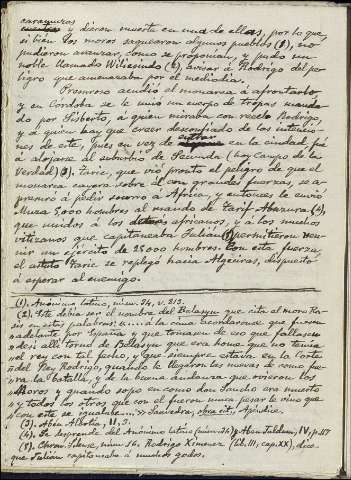 caravaneros
y dieron muerte en una de ellas, por lo que,
si bien los moros saquearon algunos pueblos (1), no
pudieron avanzar, como se proponían, y pudo un
noble llamado Wiliesindo (2) avisar á Rodrigo del pe-
ligro que amenazaba por el mediodía.
Presuroso acudió el monarca á afrontarlo,
y en Córdoba se le unió un cuerpo de tropas manda-
do por Sisberto, á quien miraba con recelo Rodrigo,
y á quien hay que creer desconfiado de las intencio-
nes de este, pues en vez de entrar en la ciudad, fué
á alojarse al suburbio de Secunda (hoy campo de la
Verdad) (3). Taric, que vió pronto el peligro de que el
monarca cayera sobre él con grandes fuerzas, se a-
presuró á pedir socorro á Africa, y entonces le envió
Muza 5,000 hombres al mando de Tarif Abuzara (4),
que unidos á los africanos, y á los muchos
vitizanos que capitaneaba Julián (5) permitieron reu-
nir un ejército de 25000 hombres. Con esta fuerza
el astuto Taric se replegó hacia Algeciras, dispuesto
á esperar al enemigo.
(1). Anónimo latino, núm. 34, v. 213.
(2). Este debía ser el nombre del Belasyn que cita el moro Ra-
sis en estas palabras: «....á la cima acordaronse que fuesen
adelante por España y que tomasen de eso que fallasen
é deis allí torno de Bellasyn que era home que no tenia
el rey con tal fecho, y que siempre estava en la Corte
del Rey Rodrigo, quando le llegaron las nuevas de como fue-
ra la batalla, y de la buena andanza que ovieron los
Moros y quando sopo en como don Sancho era muerto
y todos los otros que con el fueron nunca pesar le vino que
con este se igualase...» Saavedra, obra cit. Apéndice.
(3). Aben Alkotia, II, 3.
(4). Se desprende del Anónimo latino (núm. 34) y Aben Jaldun, IV, p. 117
(5). Chron. Silense, núm. 16. Rodrigo Ximenez (lib. III, cap. XX), dice
que Julián capitaneaba á muchos godos.